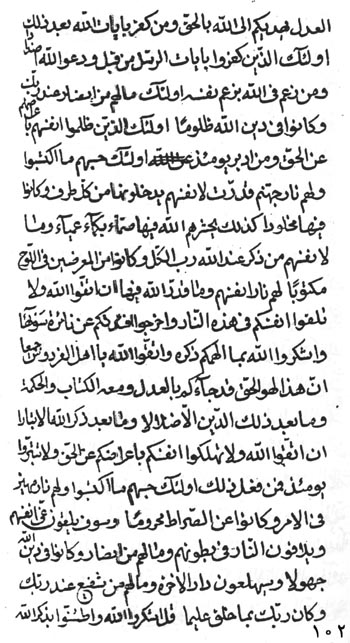 العدل يهديكم الى الله بالحق ومن كفر بايات الله بعد ذلك
اولئك الذين كفروا بايات الرسل من قبل ودعوا الله
ومن زعم في الله بزعم نفسه اولئك مالهم من انصار عند ربك
وكانوا في دين الله ظلوما اولئك الذين ظلموا انفسهم
عن الحق ومن ادبر يومئذ اولئك حسبهم ما اكتسبوا
ولهم نار جهنم قد رت لانفسهم يدخلونها من كل طرف وكانوا
فيها كذلك يحشرهم الله فيها صماء بكماء عمياء وما
لانفسهم من ذكر عند الله رب الكل وكانوا من المعرضين في اللوح
مكتوبا لهم نار انفسهم وما قدر الله فيها ان اتقوا الله ولا
تلقوا انفسكم في هذه النار واخرجوا عن نائرة
واشكروا الله بما الهمكم ذكره واتقوا الله يا اهل الفردوس جمعا
ان هذا لهو الحق قد جاءكم بالعدل ومعه الكتاب والحكمة
وما بعد ذلك الدين الا ضلالا وما بعد ذكر الله الا تبارا
ان اتقوا الله ولا تهلكوا انفسكم باعراضكم عن الحق ولا
يومئذ فمن فعل ذلك اولئك حسبهم ما اكتسبوا ولهم نار
في الامر وكانوا عن الصراط محروما وسوف يلقون عن انفسهم
ويلاقون النار في بطونهم ومالهم من انصار وكانوا في دين الله
جهولا وسيهلعون دار الاخرة ومالهم من شفيع عند ربك
وكان ربك بما خلق عليما قل ان اشكروا الله واطمئنوا بذكر الله
١٠٢